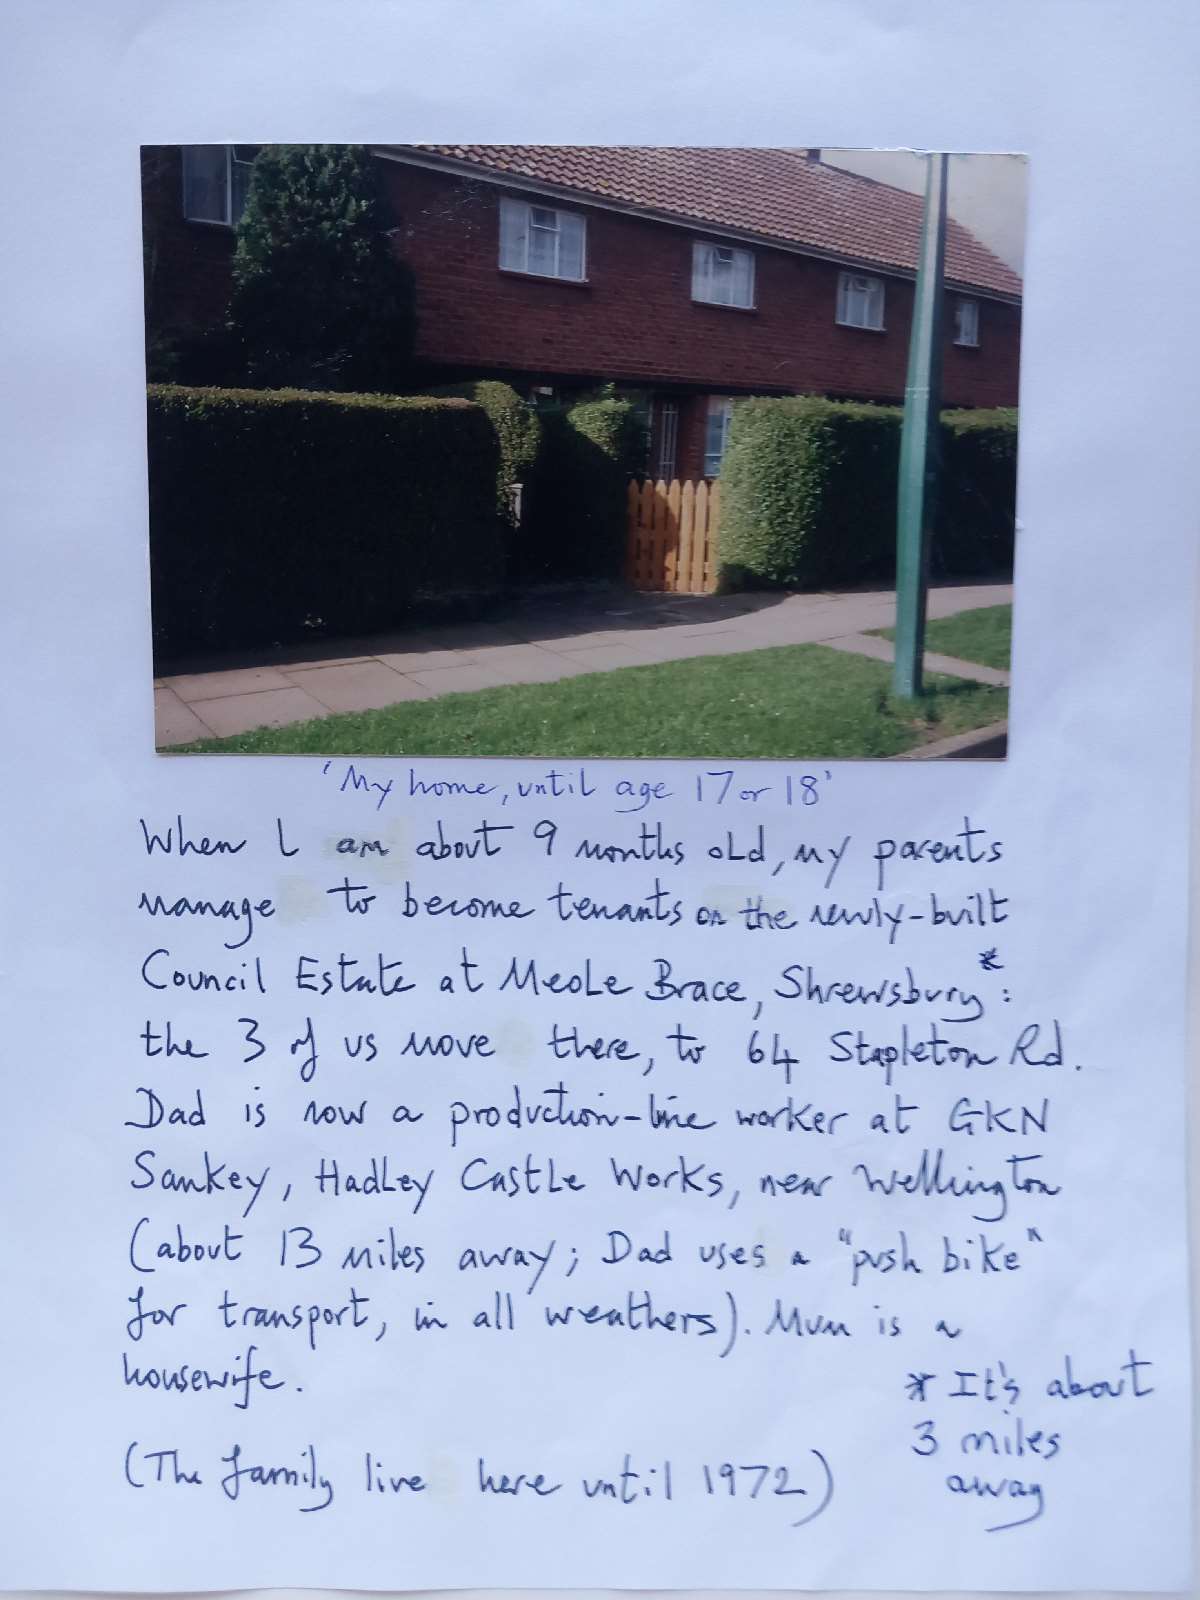 'My home, until age 17 or 18'
When I am about 9 months old, my parents
manage to become tenants on the newly-built
Council Estate at Meole Brace, Shrewsbury*:
the 3 of us move there, to 64 Stapleton Rd.
Dad is now a production-line worker at GKN
Sankey, Hadley Castle Works, near Wellington
(about 13 miles away; Dad uses a "push bike"
for transport, in all weathers). Mum is a
housewife.
* It's about
3 miles
away
(The family live here until 1972)